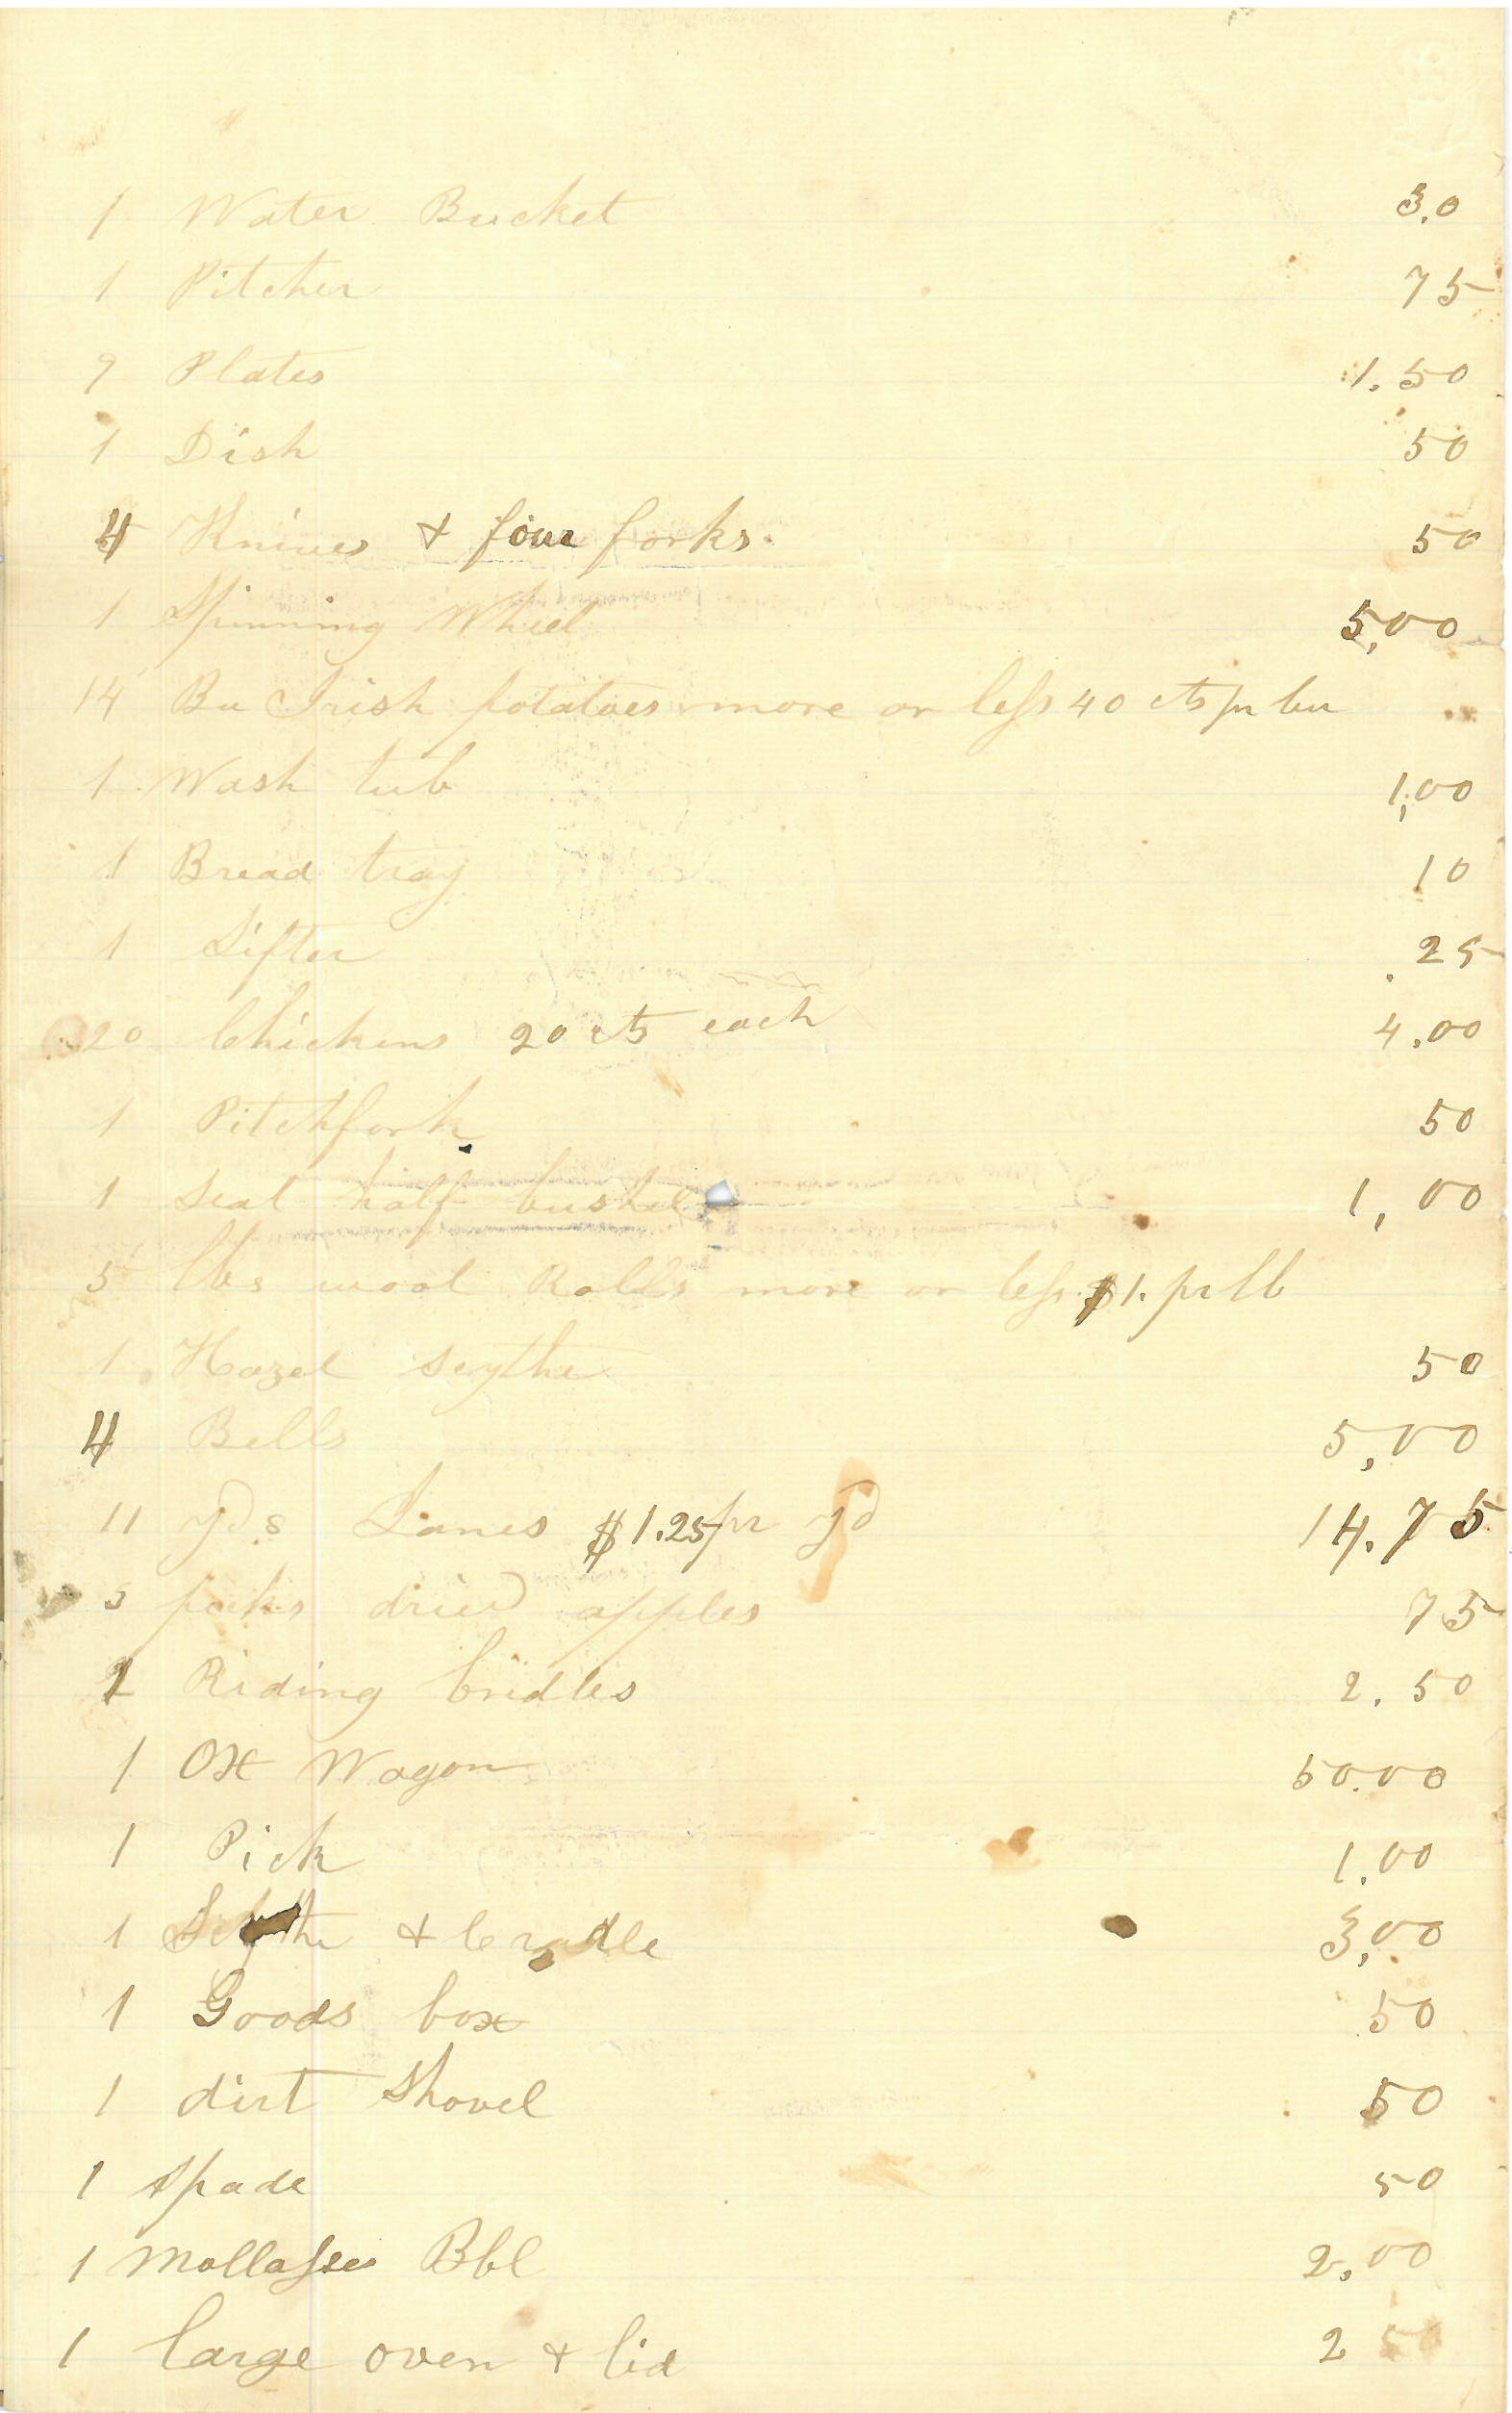 1 Water Bucket 3.0
1 Pitcher 75
9 Plates 1.50
1 Dish 50
4 Knives & four forks 50
1 Spinning Wheel 5,00
14 Bu Irish potatoes more or less 40 cts pr bu
1 Wash tub 1,00
1 Bread tray 10
1 Sifter .25
20 Chickens 20 cts each 4.00
1 Pitchfork 50
1 Seal half bushel 1,00
5 lbs wool Rolls more or less $1. pr lb
1 Hazel scythe 50
4 Bells 5,00
11 yds Janes $1.25 pr yd 14.75
3 pecks dried apples 75
2 Riding bridles 2.50
1 Ox Wagon 50.00
1 Pick 1.00
1 Scythe & Cradle 3,00
1 Goods box 50
1 dirt shovel 50
1 spade 50
1 Mollasses Bbl 2,00
1 large oven & lid 2 50